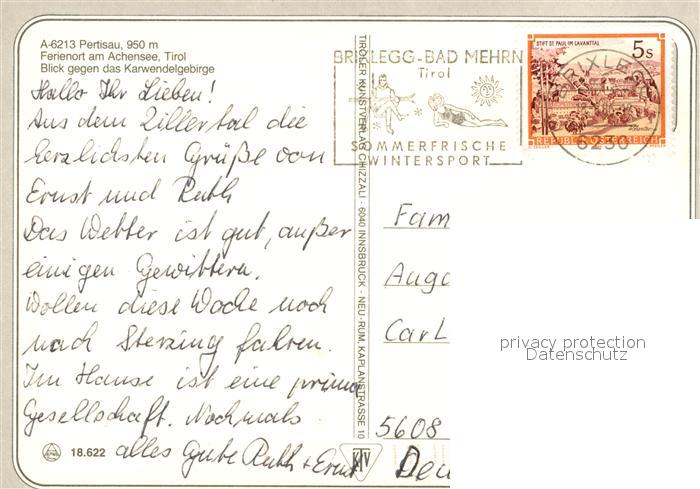 A-6213 Pertisau, 950 m
Ferienort am Achensee, Tirol
Blick gegen das Karwendelgebirge
Hallo Ihr Lieben!
Aus dem Zillertal die
herzlichsten Grüße von
Ernst und Ruth
Das Wetter ist gut, außer
einigen Gewittern.
Wollen diese Woche noch
nach Sterzing fahren.
Im Hause ist eine prima
Gesellschaft. Nochmals
alles Gute Ruth + Ernst
18.622
TIROLER KUNSTVERLAG CHIZZALI · 6040 INNSBRUCK - NEU-RUM, KAPLANSTRASSE 10
KTV
BRIXLEGG-BAD MEHRN
Tirol
SOMMERFRISCHE
WINTERSPORT
STIFT ST. PAUL IM LAVANTTAL
5s
REPUBLIK ÖSTERREICH
BRIXLEGG
6230
Fam
Augu
Carl
5608
Deu
privacy protection
Datenschutz